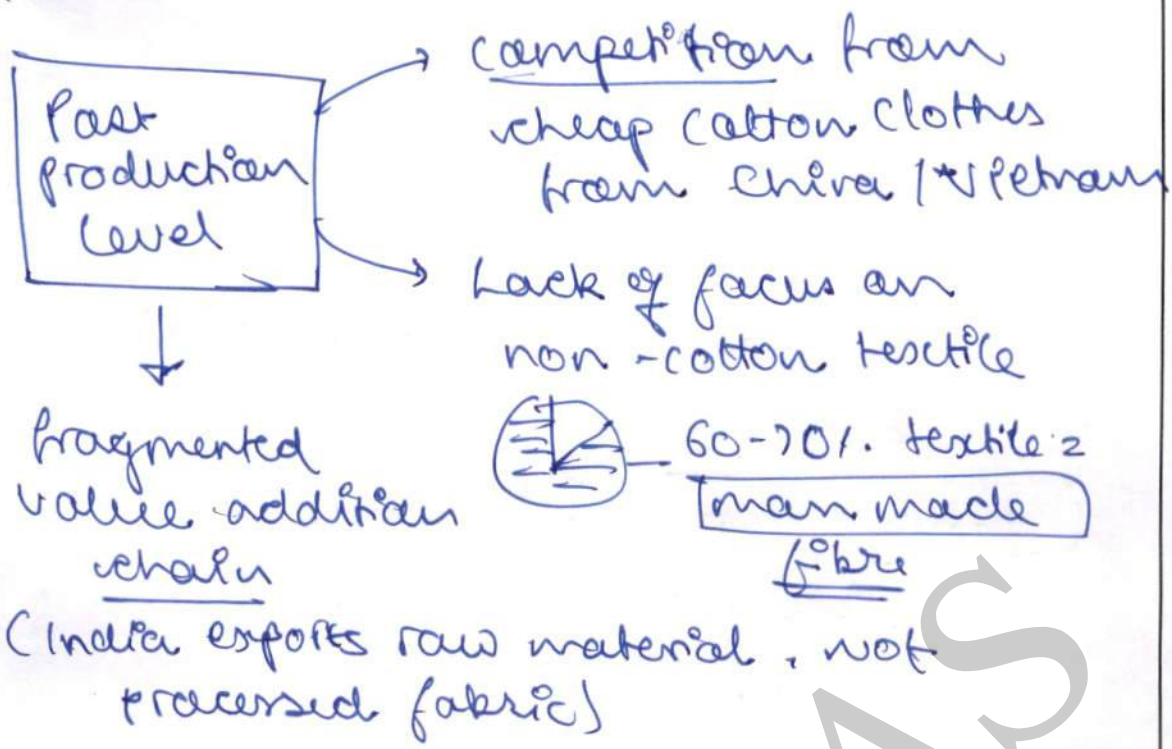 Post
production
level
competition from
cheap cotton clothes
from China / Vietnam
Lack of focus on
non-cotton textile
60-70%. textile =
man made
fibre
fragmented
value addition
chain
(India exports raw material, not
processed fabric)
AS